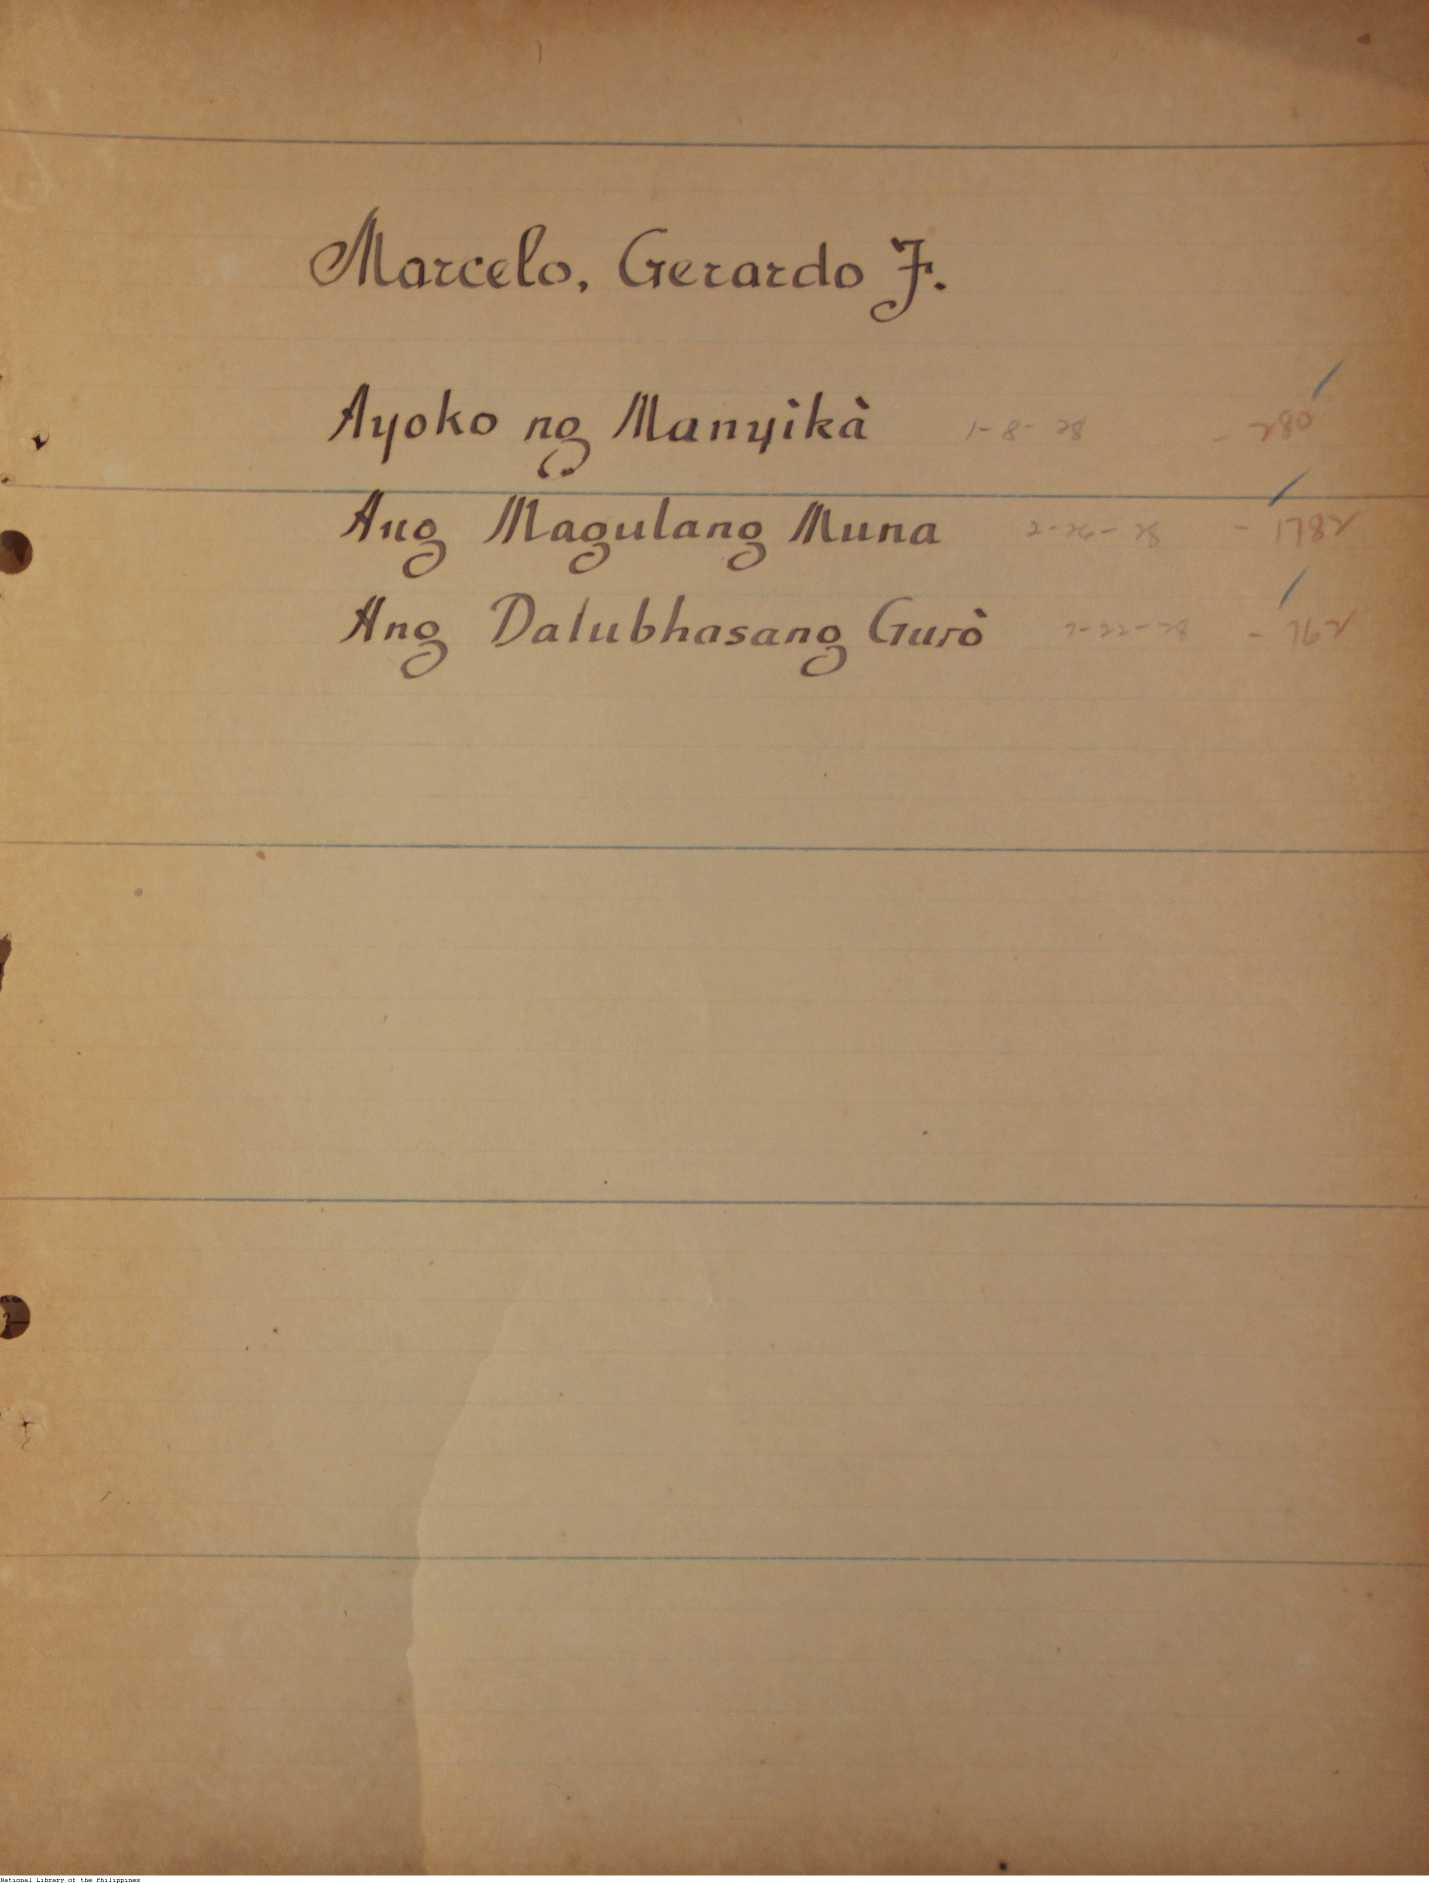 Marcelo, Gerardo F.
Ayoko ng Manyikà 1-8-28 - 280
Ang Magulang Muna 2-26-28 - 1782
Ang Dalubhasang Gurò -22-28 - 762
National Library of the Philippines